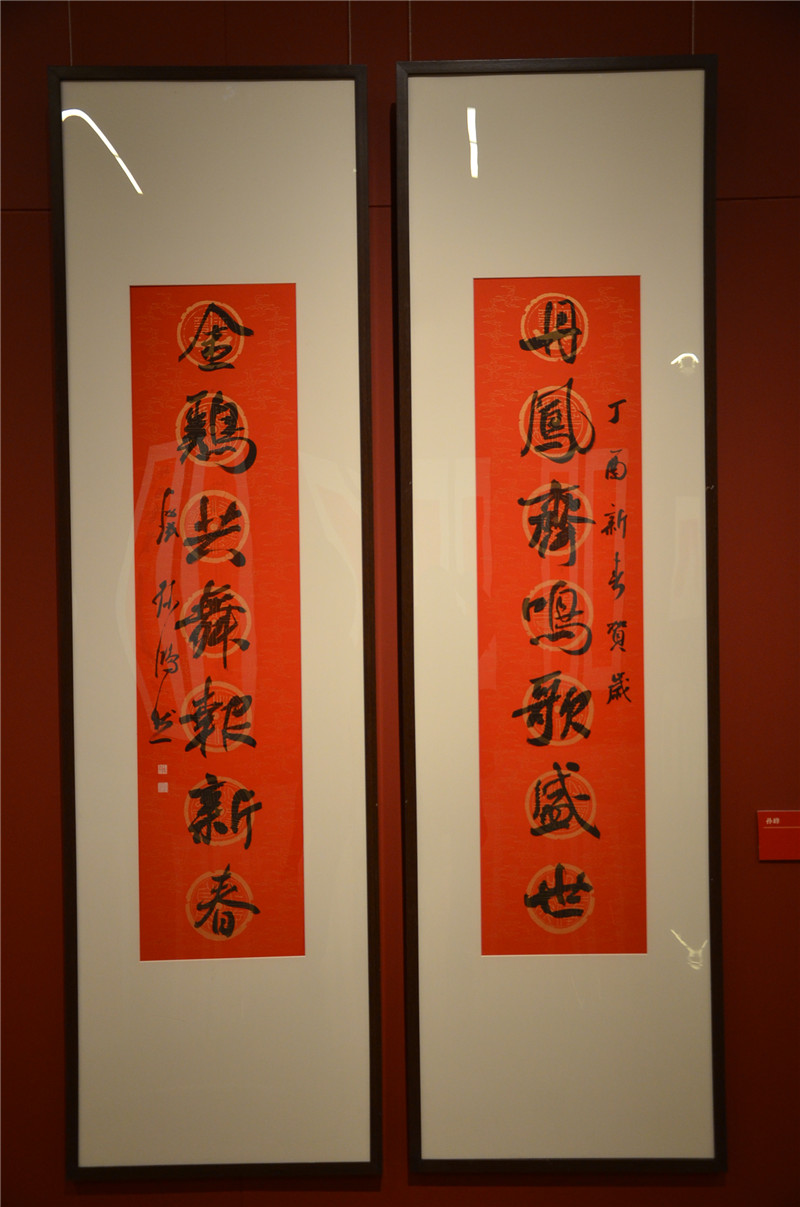 丹鳳齊鳴歌盛世
丁酉新春賀歲
金鷄共舞報新春